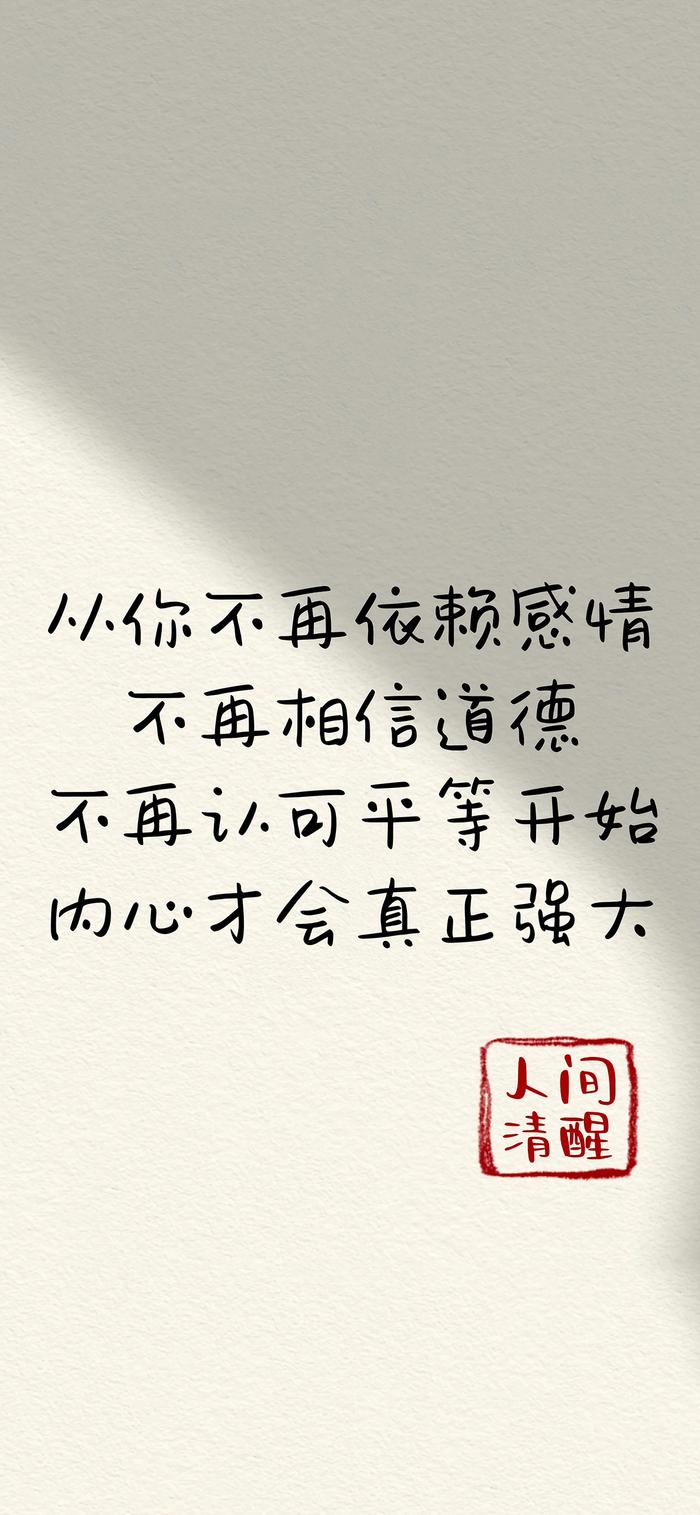 从你不再依赖感情
不再相信道德
不再认可平等开始
内心才会真正强大
人间
清醒